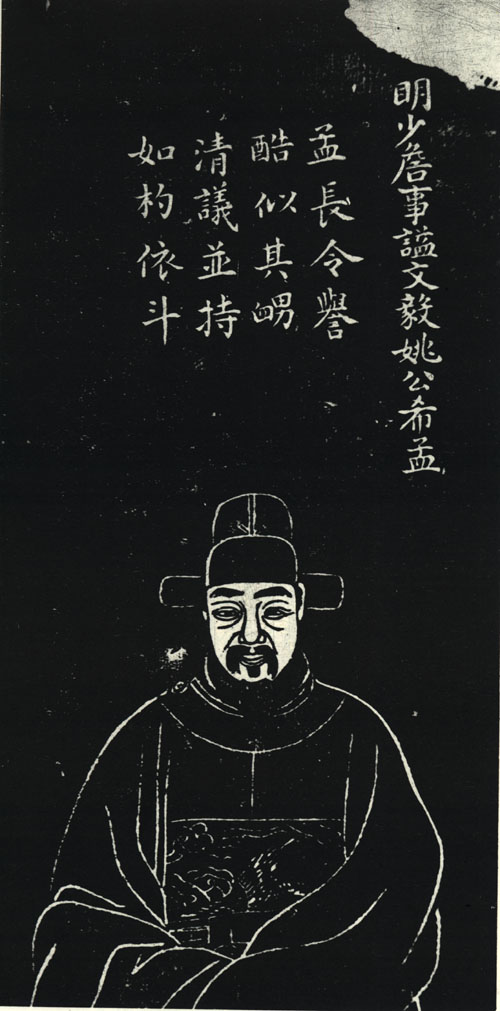 明少詹事謚文毅姚公希孟
孟長令譽
酷似其舅
清議並持
如杓依斗